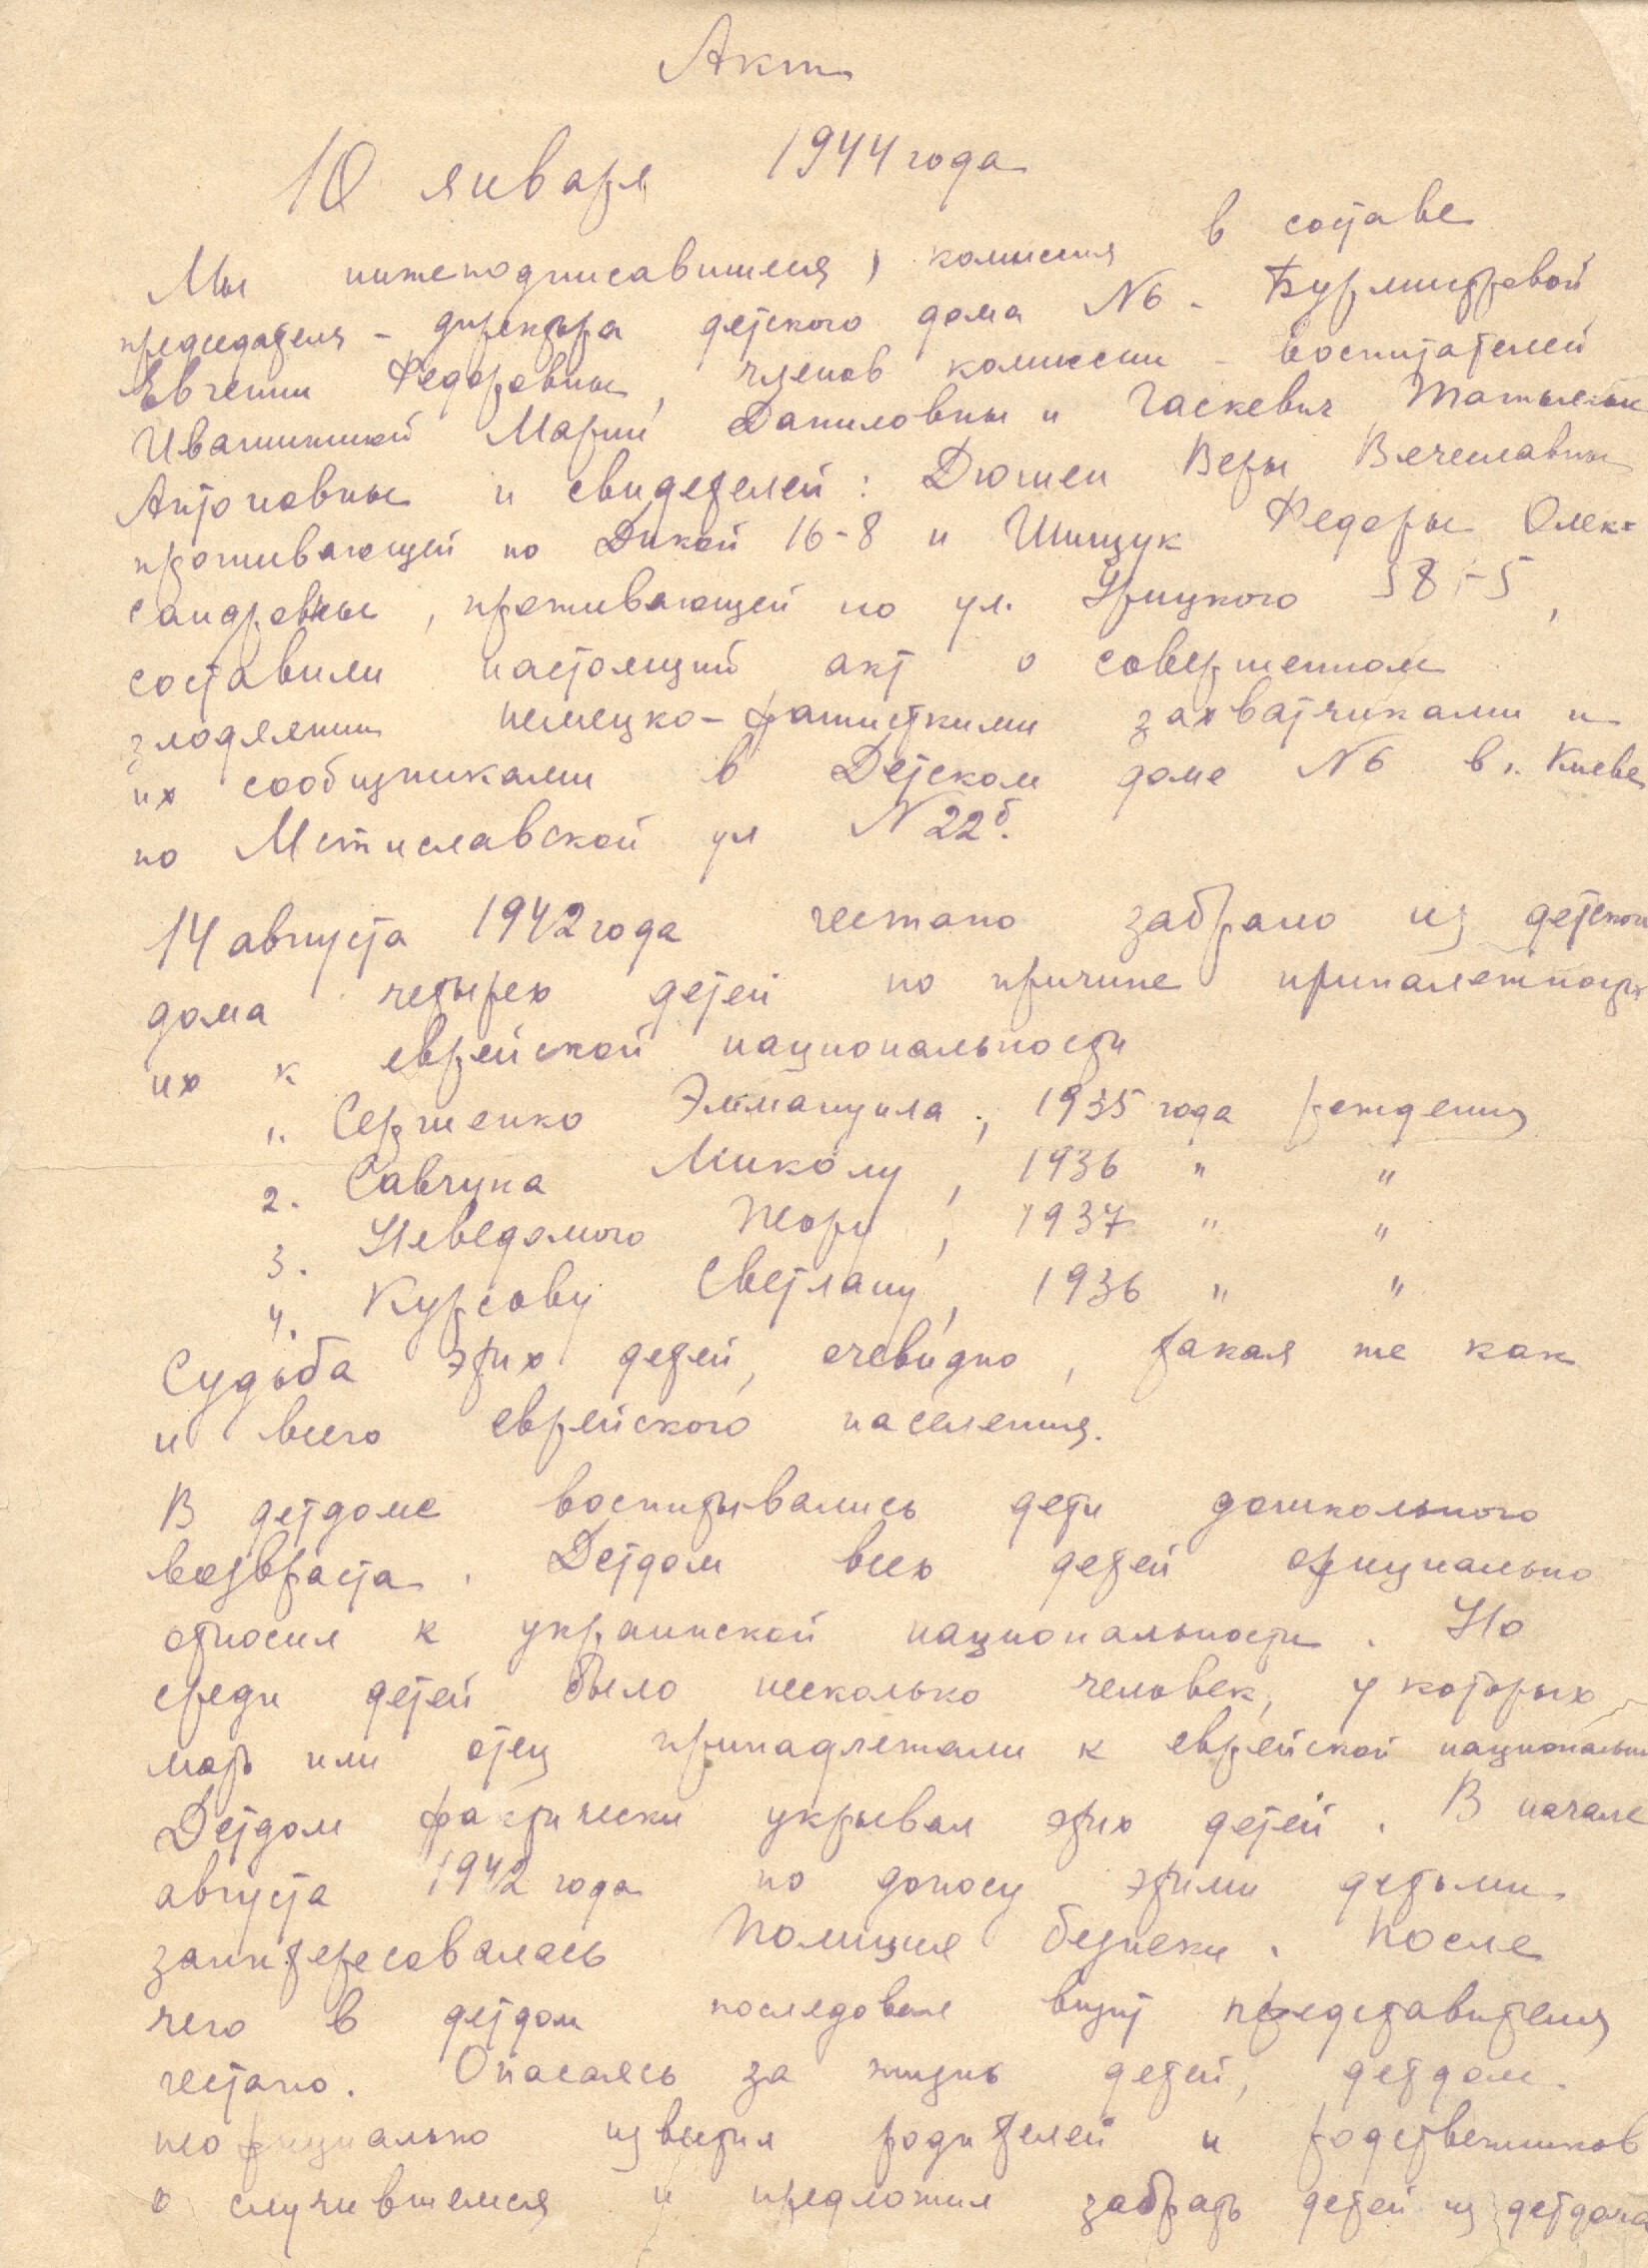 Акт
10 января 1944 года
Мы нижеподписавшиеся, комиссия в составе
председателя - директора детского дома N6 - Бурмистровой
Евгении Федоровны, членов комиссии - воспитателей
Марии Даниловны и Гаскевич Татьяны
Антоновны и свидетелей: Дюжен Веры Вечеславны
проживающей по Дикой 16-8 и Шищук Федоры Олек-
сандровны, проживающей по ул. Урицкого 38-5,
составили настоящий акт о совершенном
злодеянии немецко-фашисткими захватчиками и
их сообщниками в Детском доме N6 в г. Киеве
по Мстиславской ул N22б.
14 августа 1942 года гестапо забрало из детского
дома четырех детей по причине приналежности
их к еврейской национальности
1. Сергиенко Эммануила, 1935 года рождения
2. Савчука Миколу, 1936 " "
3. Неведомого Жору, 1937 " "
4. Курсову Светлану, 1936 " "
Судьба этих детей, очевидно, такая же как
и всего еврейского населения.
В детдоме воспитывались дети дошкольного
возвраста. Детдом всех детей официально
относил к украинской национальности. Но
среди детей было несколько человек, у которых
мать или отец принадлежали к еврейской национальн
Детдом фактически укрывал этих детей. В начале
августа 1942 года по доносу этими детьми
заинтересовалась Полиция безпеки. После
чего в детдом последовал визит представителя
гестапо. Опасаясь за жизнь детей, детдом
неофициально известил родителей и родственников
о случившемся и предложил забрать детей из детдома